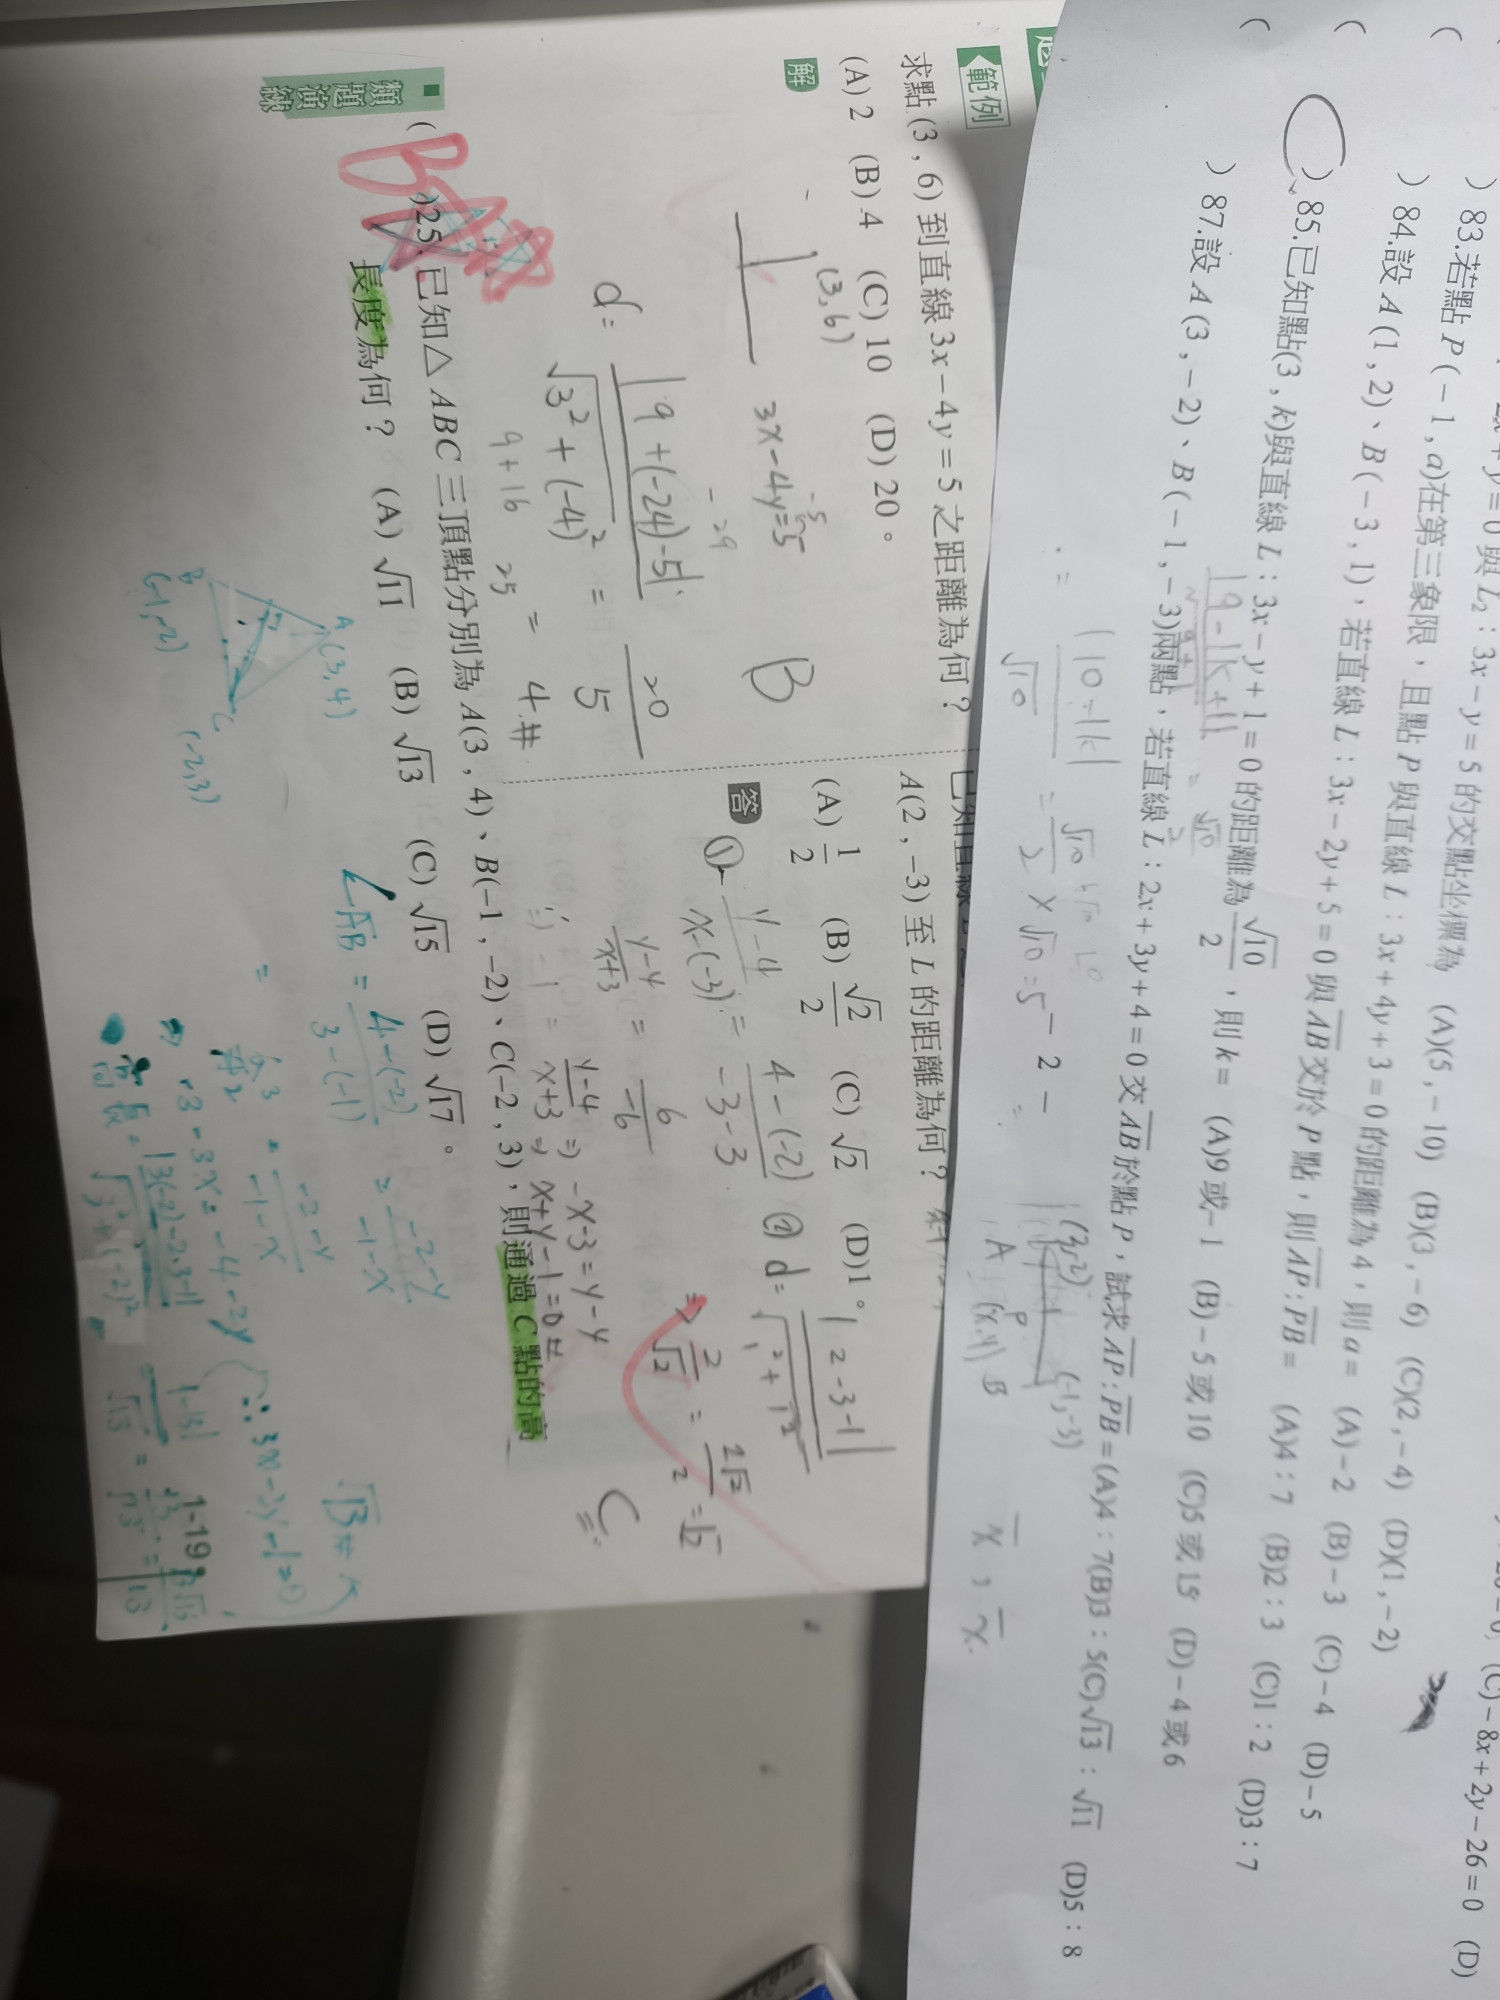 2x + y = 0 與 L₂ : 3x − y = 5 的交點坐標為 (A)(5 , − 10) (B)(3 , − 6) (C)(2 , − 4) (D)(1 , − 2)
( ) 83.若點 P ( − 1 , a)在第三象限，且點 P 與直線 L : 3x + 4y + 3 = 0 的距離為 4，則 a = (A) − 2 (B) − 3 (C) − 4 (D) − 5
( ) 84.設 A (1 , 2)、B ( − 3 , 1)，若直線 L : 3x − 2y + 5 = 0 與 AB 交於 P 點，則 AP : PB = (A)4 : 7 (B)2 : 3 (C)1 : 2 (D)3 : 7
( ) 85.已知點(3 , k)與直線 L : 3x − y + 1 = 0 的距離為 √10/2，則 k = (A)9 或 − 1 (B) − 5 或 10 (C)5 或 15 (D) − 4 或 6
( ) 87.設 A (3 , − 2)、B ( − 1 , − 3)兩點，若直線 L : 2x + 3y + 4 = 0 交 AB 於點 P，試求 AP : PB = (A)4 : 7(B)3 : 5(C)√13 : √11 (D)5 : 8
|10-k|/√10 = √10/2 × √10 = 5
(3,-2) (-1,-3)
A P B
(x,y)
範例
求點 (3 , 6) 到直線 3x − 4y = 5 之距離為何？
(A) 2 (B) 4 (C) 10 (D) 20。
解
(3,6)
3x-4y=5
B
d = |9+(-24)-5| / √3²+(-4)² = 20/5
9+16 25 = 4 #
A(2 , −3) 至 L 的距離為何？
(A) 1/2 (B) √2/2 (C) √2 (D)1。
答
① y-4/x-(-3) = 4-(-2)/-3-3 ② d = |2-3-1|/√1²+1²
y-4/x+3 = 6/-6 ⇒ 2/√2 = 2√2/2 = √2
y-4/x+3 ⇒ -x-3=y-4
x+y-1=0 #
C
類題演練
( B )25. 已知△ABC 三頂點分別為 A(3 , 4)、B(−1 , −2)、C(−2 , 3)，則通過 C 點的高
長度為何？ (A) √11 (B) √13 (C) √15 (D) √17。
A (3,4)
B (-1,-2)
C (-2,3)
LAB = 4-(-2)/3-(-1) = -2-y/-1-x
-3-3x=-4-2y
∴ 3x-2y-1=0
高長 = |3(-2)-2·3-1|/√3²+(-2)² = |-13|/√13
√13 #
1-19